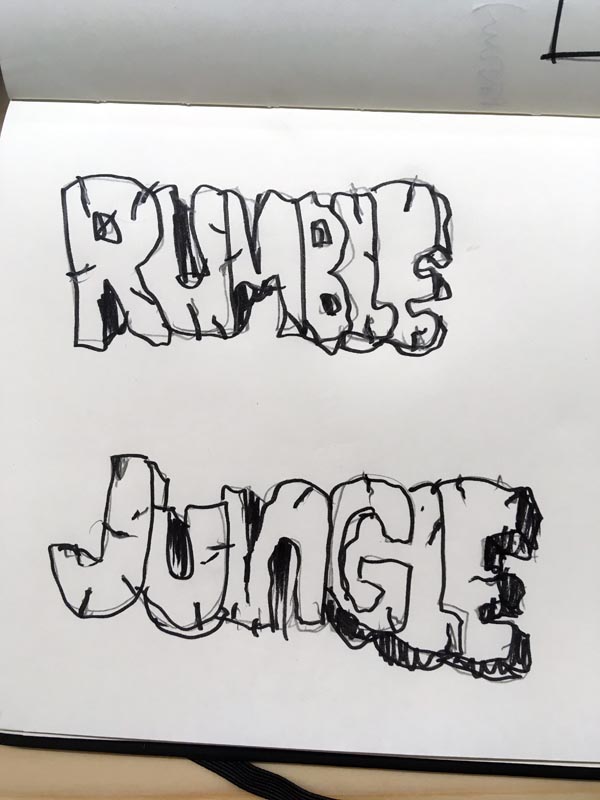 RUMBLE
JUNGLE